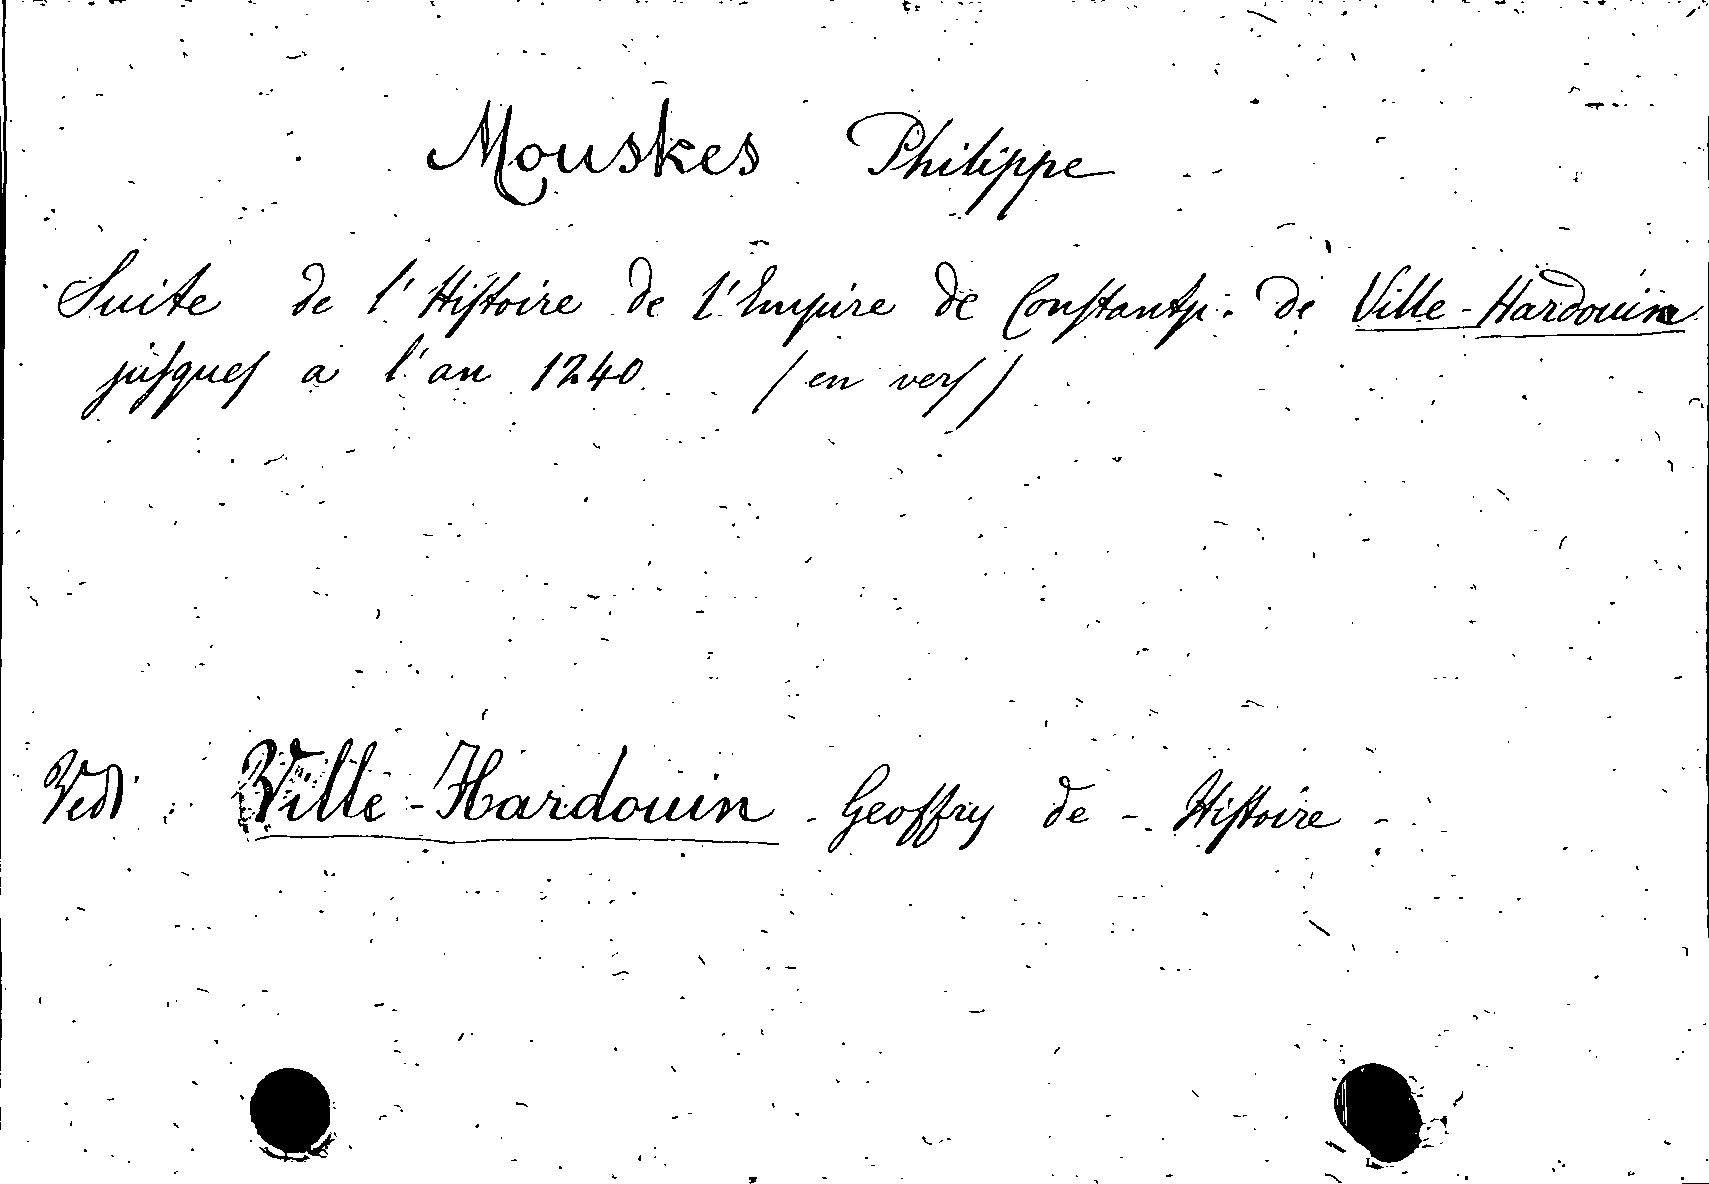 Mouskes Philippe
Suite de l'Histoire de l'Empire de Constantp. de Ville-Hardouin
jusques a l'an 1240 (en vers)
Vedi Ville-Hardouin - Geoffry de - Histoire -